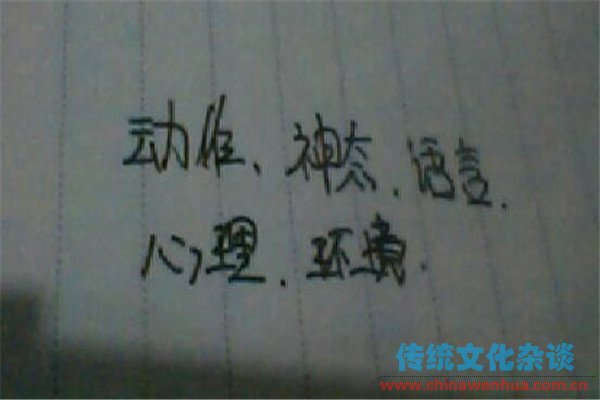 动作、神态、语言、
心理、环境.
传统文化杂谈
www.chinawenhua.com.cn